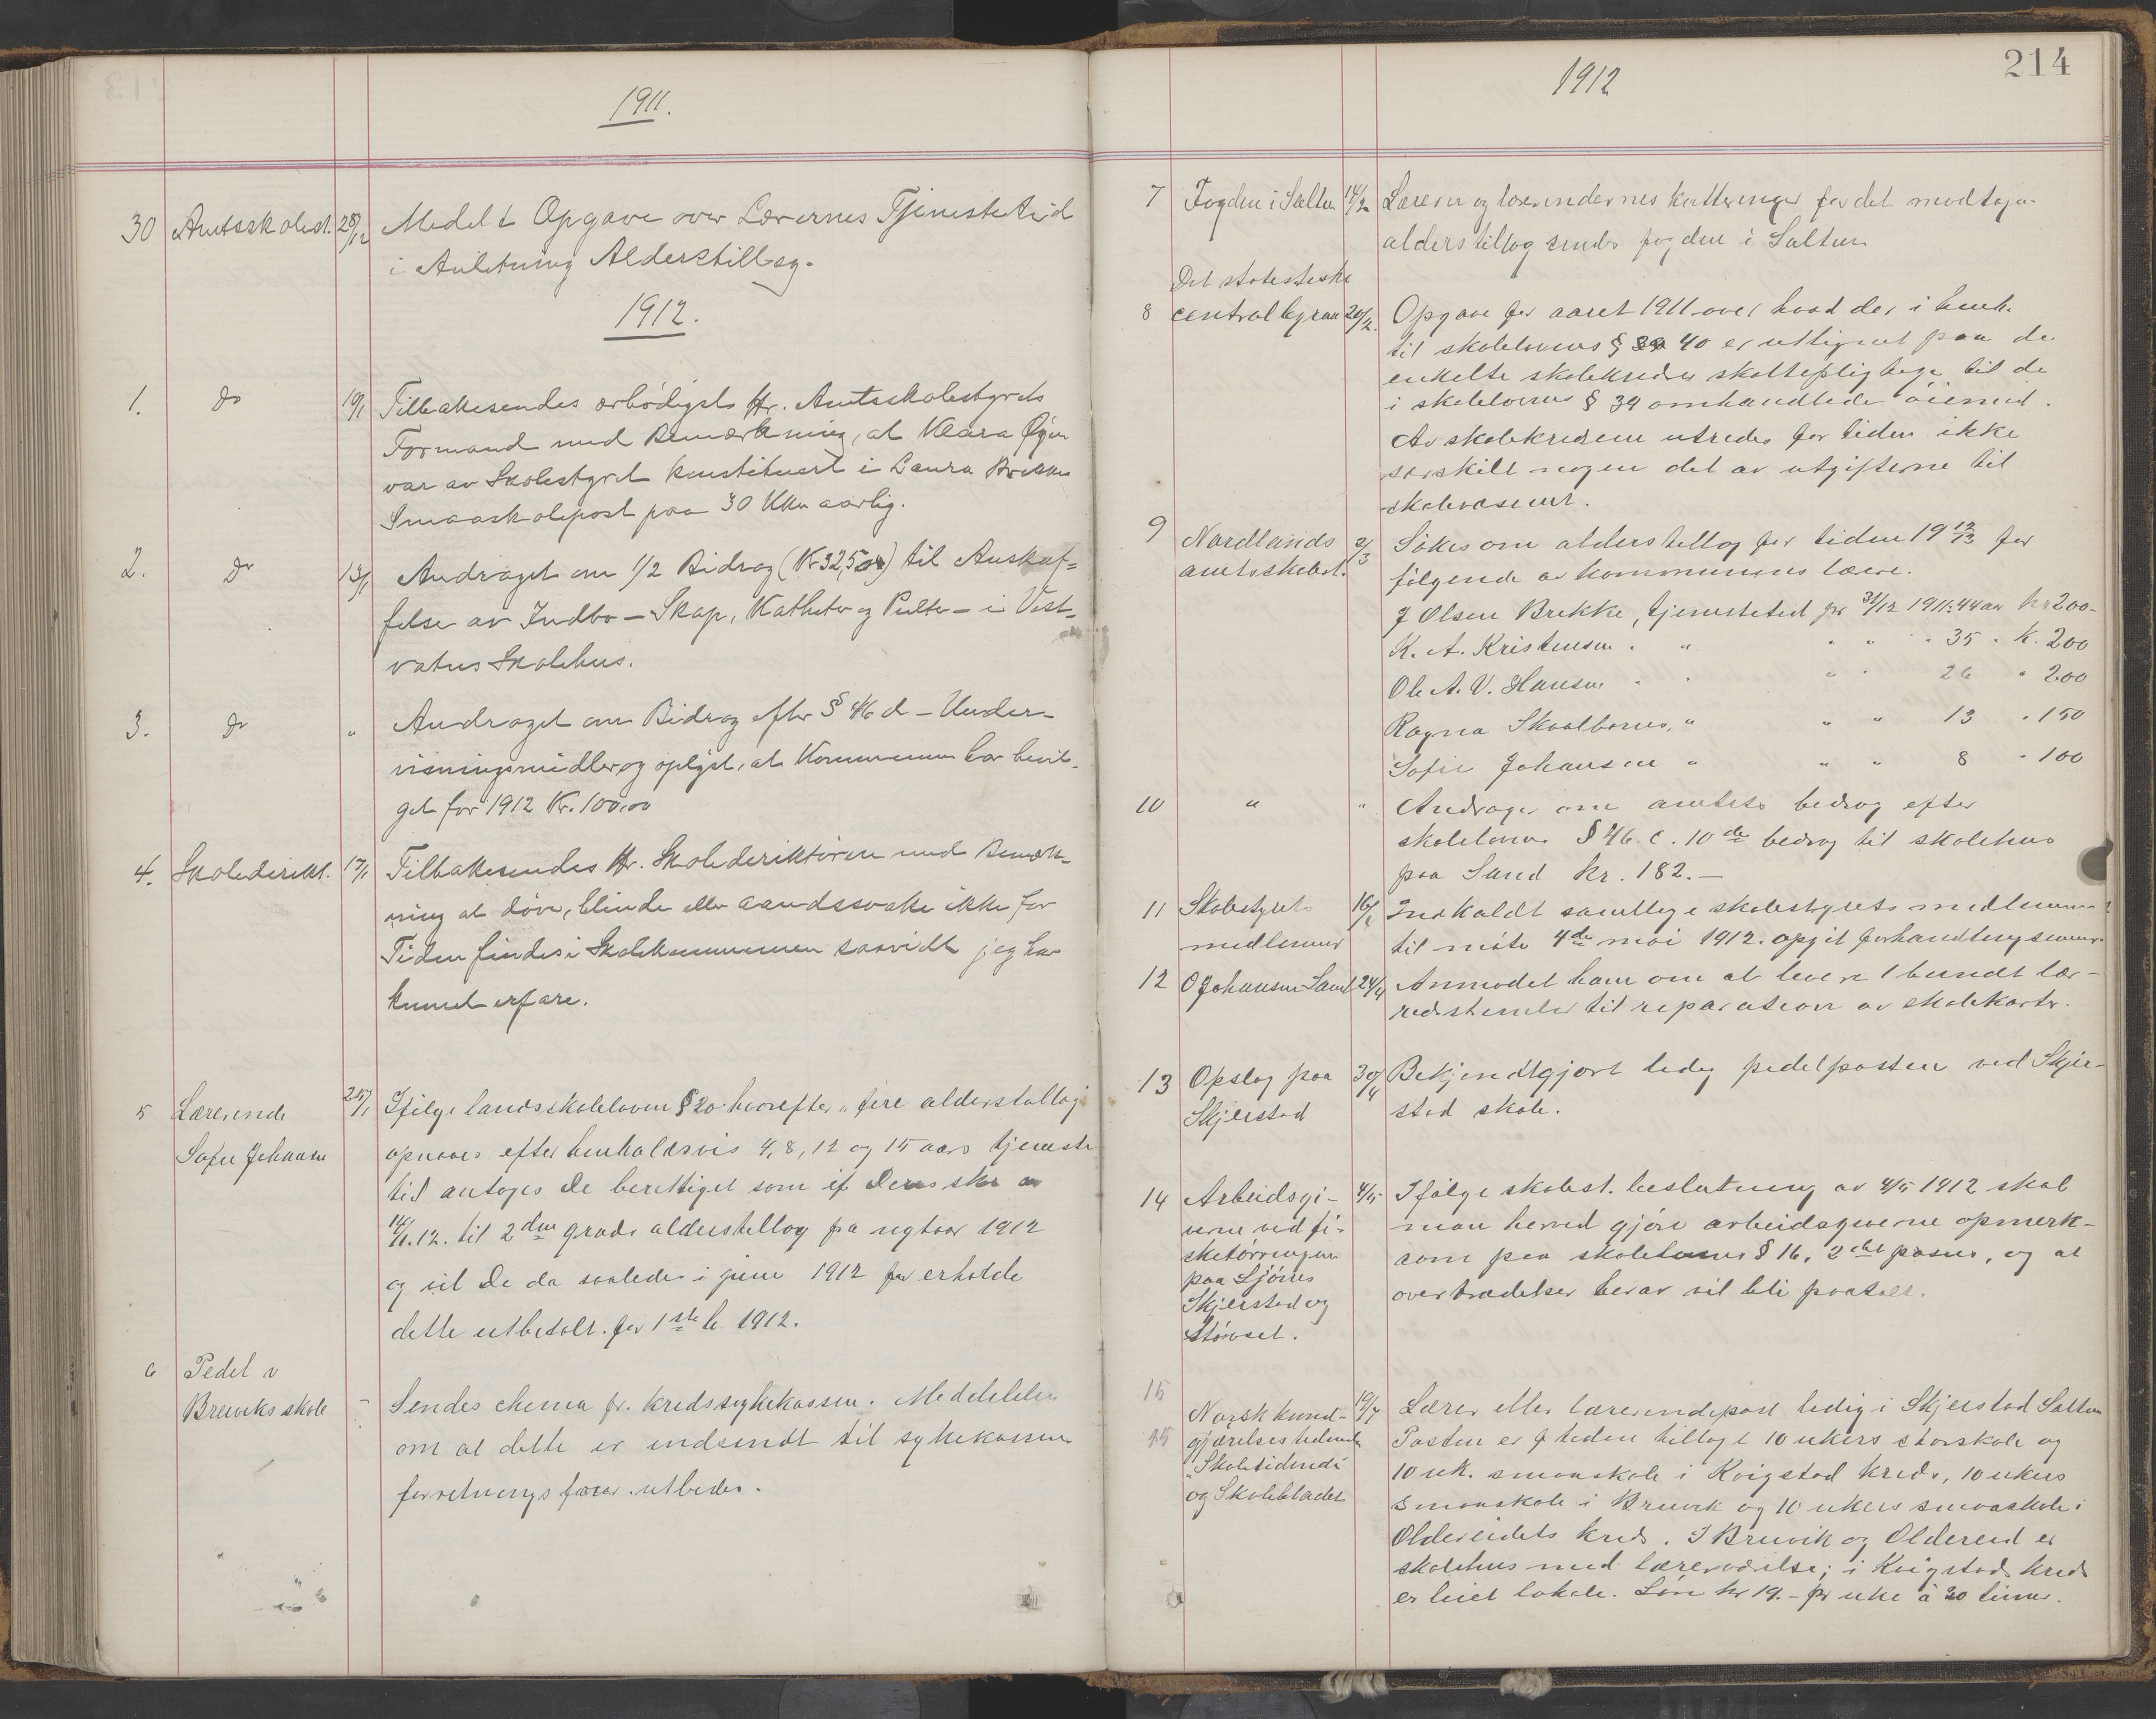 1911.
30 Amtsskolest. 28/12 Meddelt Opgave over Lærernes Tjenestetid
i Anledning Alderstillæg.
1912.
1. Do 10/1 Tilbakesendes ærbødigst Hr. Amtsskolestyrets
Formand med Bemærkning, at Klara Øyen
var av Skolestyret konstituert i Laura Brekkes
Smaaskolepost paa 30 Uker aarlig.
2. Do 13/1 Andraget om 1/2 Bidrag (Kr 32,50) til Anskaf=
felse av Indbo - Skap, Katheter og Pulter - i Vest=
vatns Skolehus.
3. Do " Andraget om Bidrag efter § 46 d - Under-
visningsmidler og oplyst, at Kommunen har bevil-
get for 1912 Kr. 100,00
4. Skoledirekt. 17/1 Tilbakesendes Hr. Skoledirektøren med Bemærk-
ning at døve, blinde eller aandssvake ikke for
Tiden findes i Skolekommunen saavidt jeg har
kunnet erfare.
5 Lærerinde 25/1 Ifølge landsskoleloven § 20 hvorefter "fire alderstillæg
Sofie Johansen opnaaes efter henholdsvis 4, 8, 12 og 15 aars tjeneste
tid antages De berettiget som
14/1.12. til 2den grads alderstillæg fra nytaar 1912
og vil De da saaledes i juni 1912 faa erholde
dette utbetalt for 1ste h. 1912.
6 Pedel v
Breiviks skole - Sendes skema fr. kredssykekassen. Meddelelse
om at dette er indsendt til sykekassens
forretningsfører utbedes.
214
1912
7 Fogden i Salten 14/2 Lærer og lærerindernes kvitteringer for det modtagne
alderstillæg sendes fogden i Salten
Det statistiske
8 centralbyraa 20/2. Opgave for aaret 1911 over hvad der i henh.
til skolelovens § 40 er utlignet paa de
enkelte skolekredses skattepligtige til de
i skolelovens § 39 omhandlede øiemed.
Av skolekredsene utredes for tiden ikke
særskilt nogen del av utgifterne til
skolevæsenet.
9 Nordlands 2/3 Søkes om alderstillæg for tiden 19 12/13 for
amtsskolest. følgende av kommunens lærere.
J Olsen Brekke, tjenestetid pr 31/12 1911: 44 aar kr 200-
K. A. Kristensen " " " " 35 " k. 200
Ole A. V. Hansen " " " " 26 " 200
Ragna Skaalbones, " " " 13 " 150
Sofie Johansen " " " 8 " 100
10 " " Andrager om amtets bidrag efter
skoleloven § 46. c. 10de bidrag til skolehus
paa Sand kr. 182.-
11 Skolestyrets 16/4 Indkaldt samtlige skolestyrets medlemmer
medlemmer til møte 4de mai 1912. opgit forhandlingsemner
12 O Johansen Sand 24/4 Anmodet ham om at levere 1 bundt lær-
redsstrimler til reparation av skolekarter.
13 Opslag paa 30/4 Bekjendtgjort ledig pedelposten ved Skjer-
Skjerstad stad skole.
14 Arbeidsgi- 4/5 Ifølge skolest. beslutning av 4/5 1912 skal
verne ved fi- man herved gjøre arbeidsgiverne opmerk-
sketørringen som paa skolelovens § 16, 2det passus, og at
paa Ljønes overtrædelser herav vil bli paatalt.
Skjerstad og
Støvset.
15
Norsk kund- 19/7 Lærer eller lærerindepost ledig i Skjerstad Salten
15 gjørelsestidende Posten er f tiden tillagt 10 ukers storskole og
"Skoletidende" 10 uk. smaaskole i Kvigstad kreds, 10 ukers
og Skolebladet smaaskole i Breivik og 10 ukers smaaskole i
Oldereidets kreds. I Breivik og Oldereid er
skolehus med lærerværelse; i Kvigstad kreds
er leiet lokale. Løn kr 19.- pr uke à 30 timer.